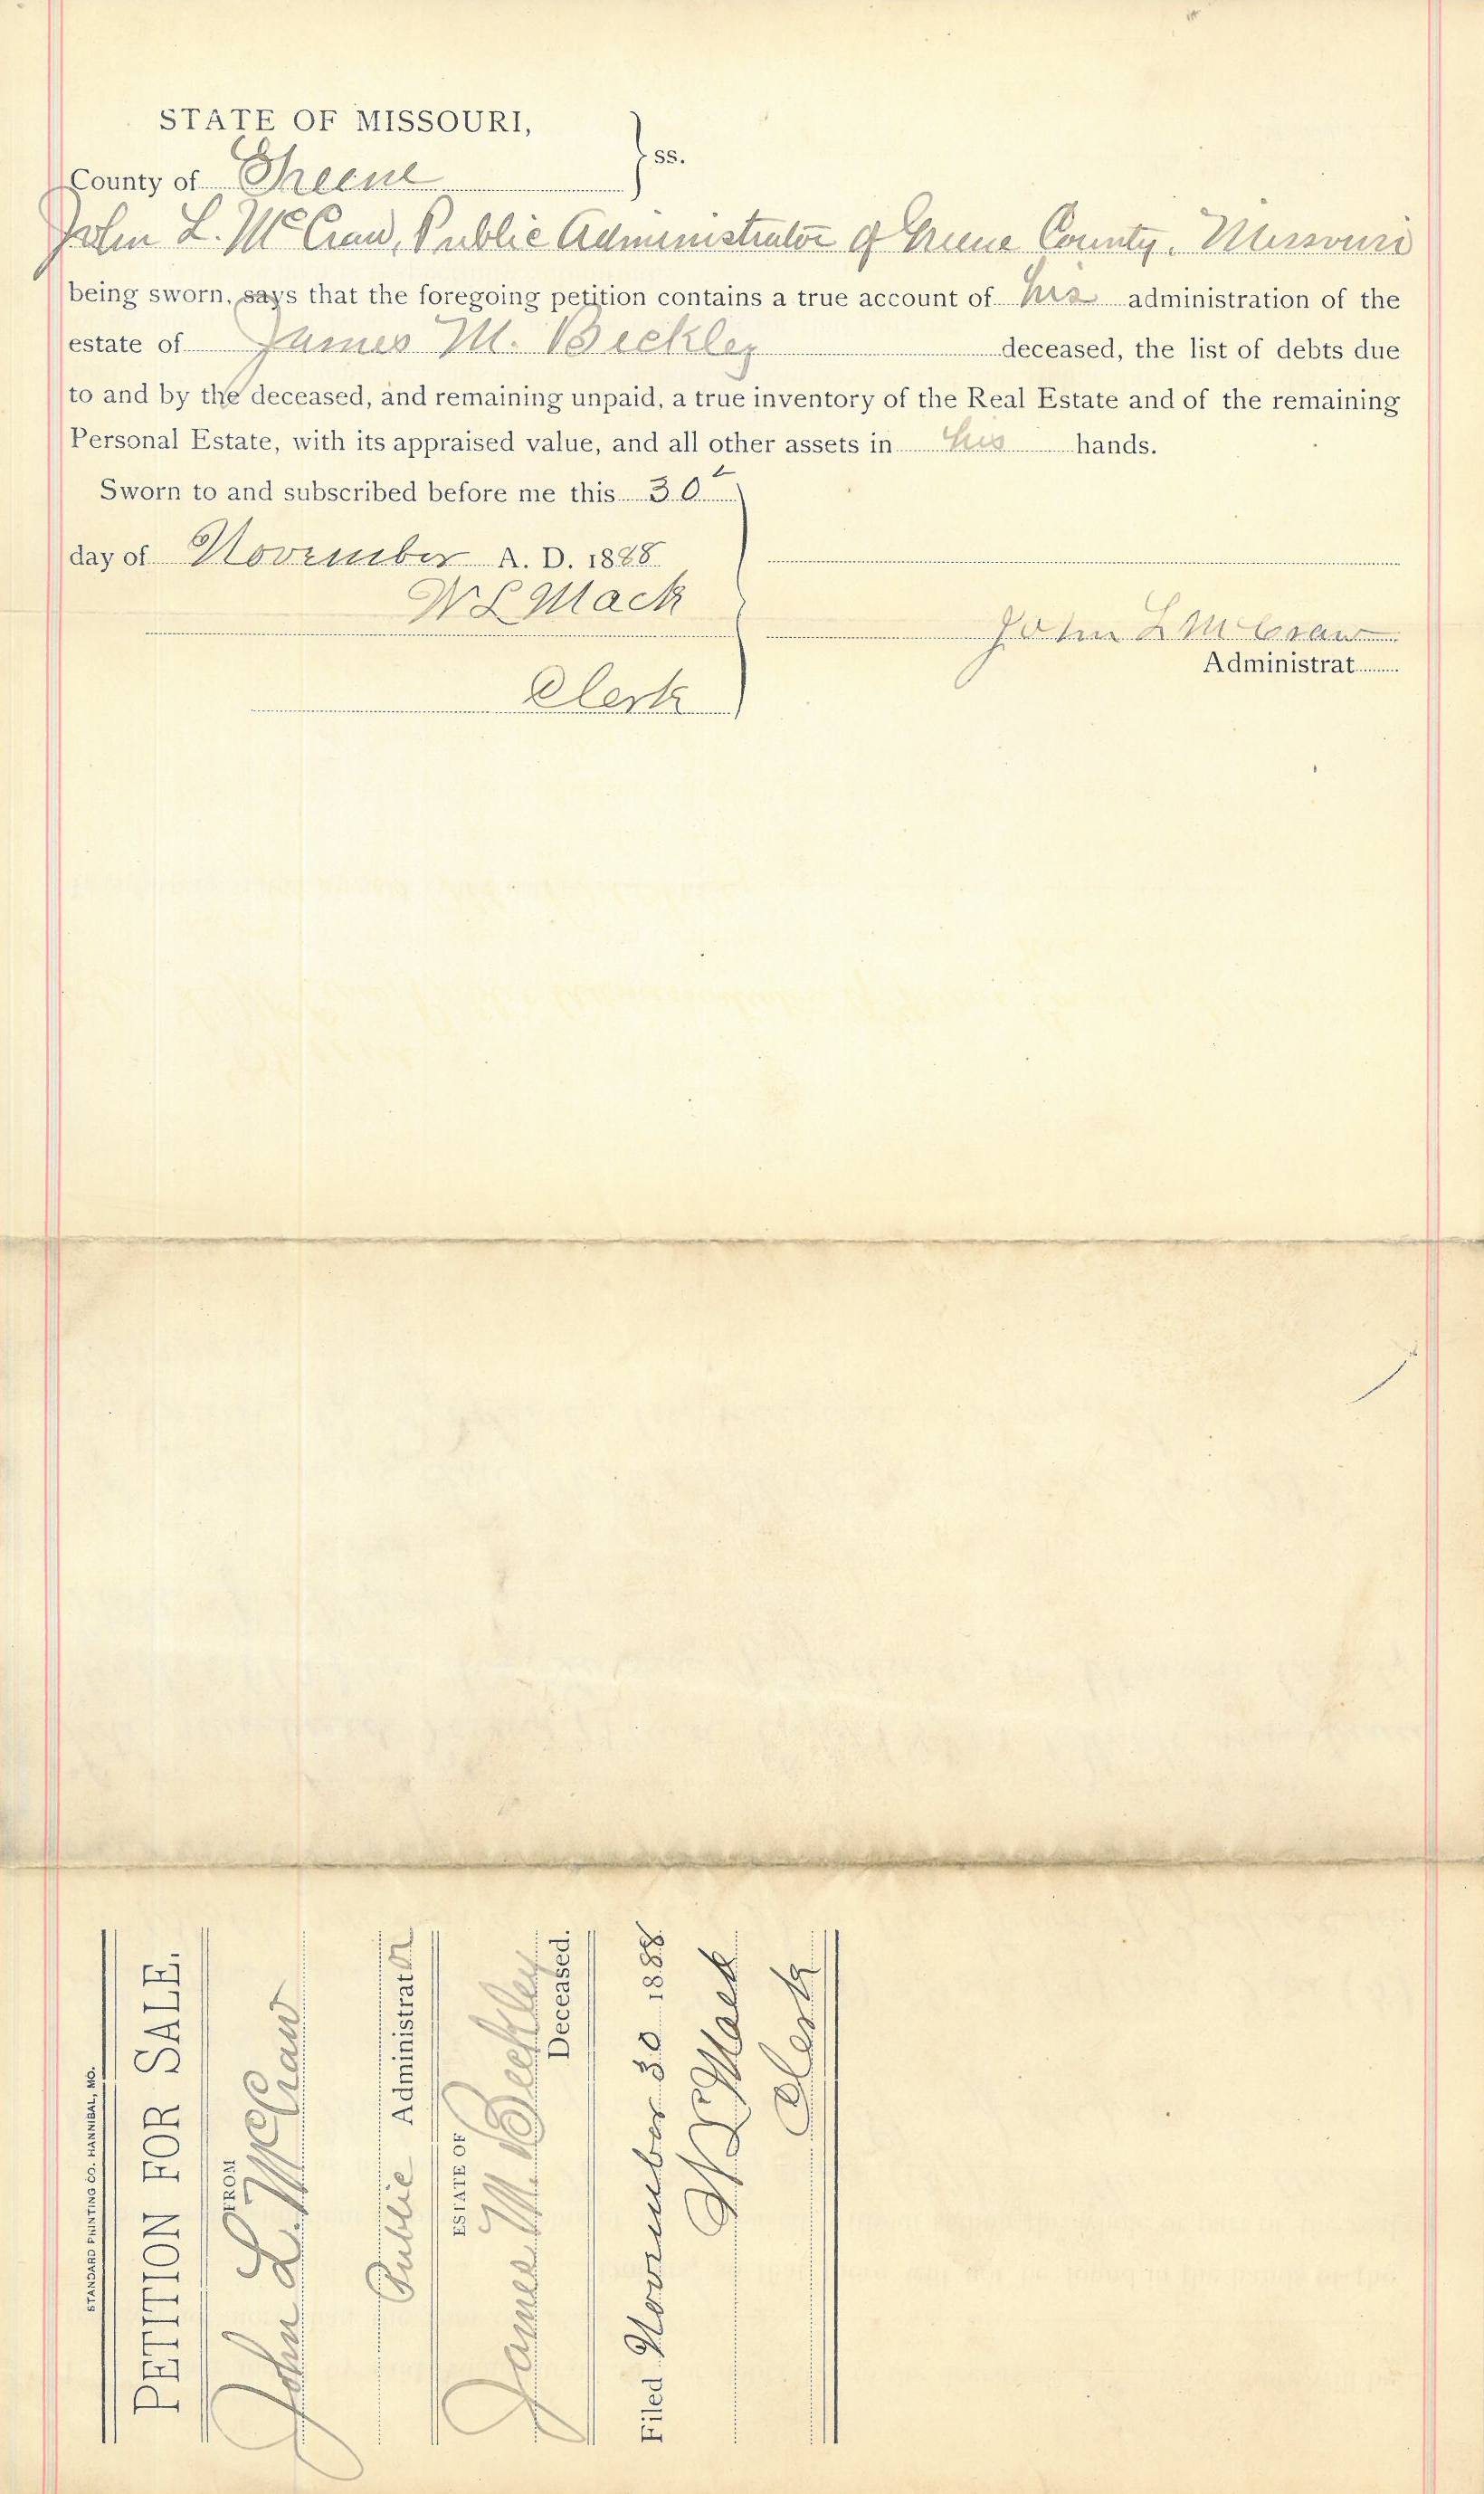 STATE OF MISSOURI,
County of Greene } ss.
John L. McCraw, Public Administrator of Greene County, Missouri
being sworn, says that the foregoing petition contains a true account of his administration of the
estate of James M. Beckley deceased, the list of debts due
to and by the deceased, and remaining unpaid, a true inventory of the Real Estate and of the remaining
Personal Estate, with its appraised value, and all other assets in his hands.
Sworn to and subscribed before me this 30
day of November A. D. 1888
W L Mack
John L McCraw
Administrat
Clerk
STANDARD PRINTING CO. HANNIBAL, MO.
PETITION FOR SALE.
FROM
John L. McCraw
Public Administrator
ESTATE OF
James M. Beckley
Deceased.
Filed November 30 1888
W L Mack
Clerk